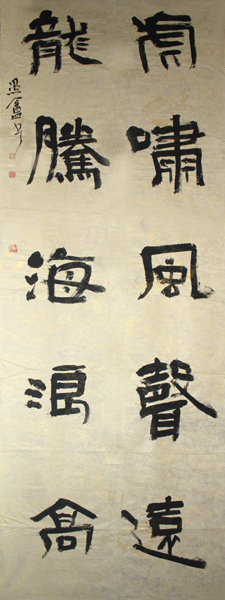 虎嘯風聲遠
龍騰海浪高